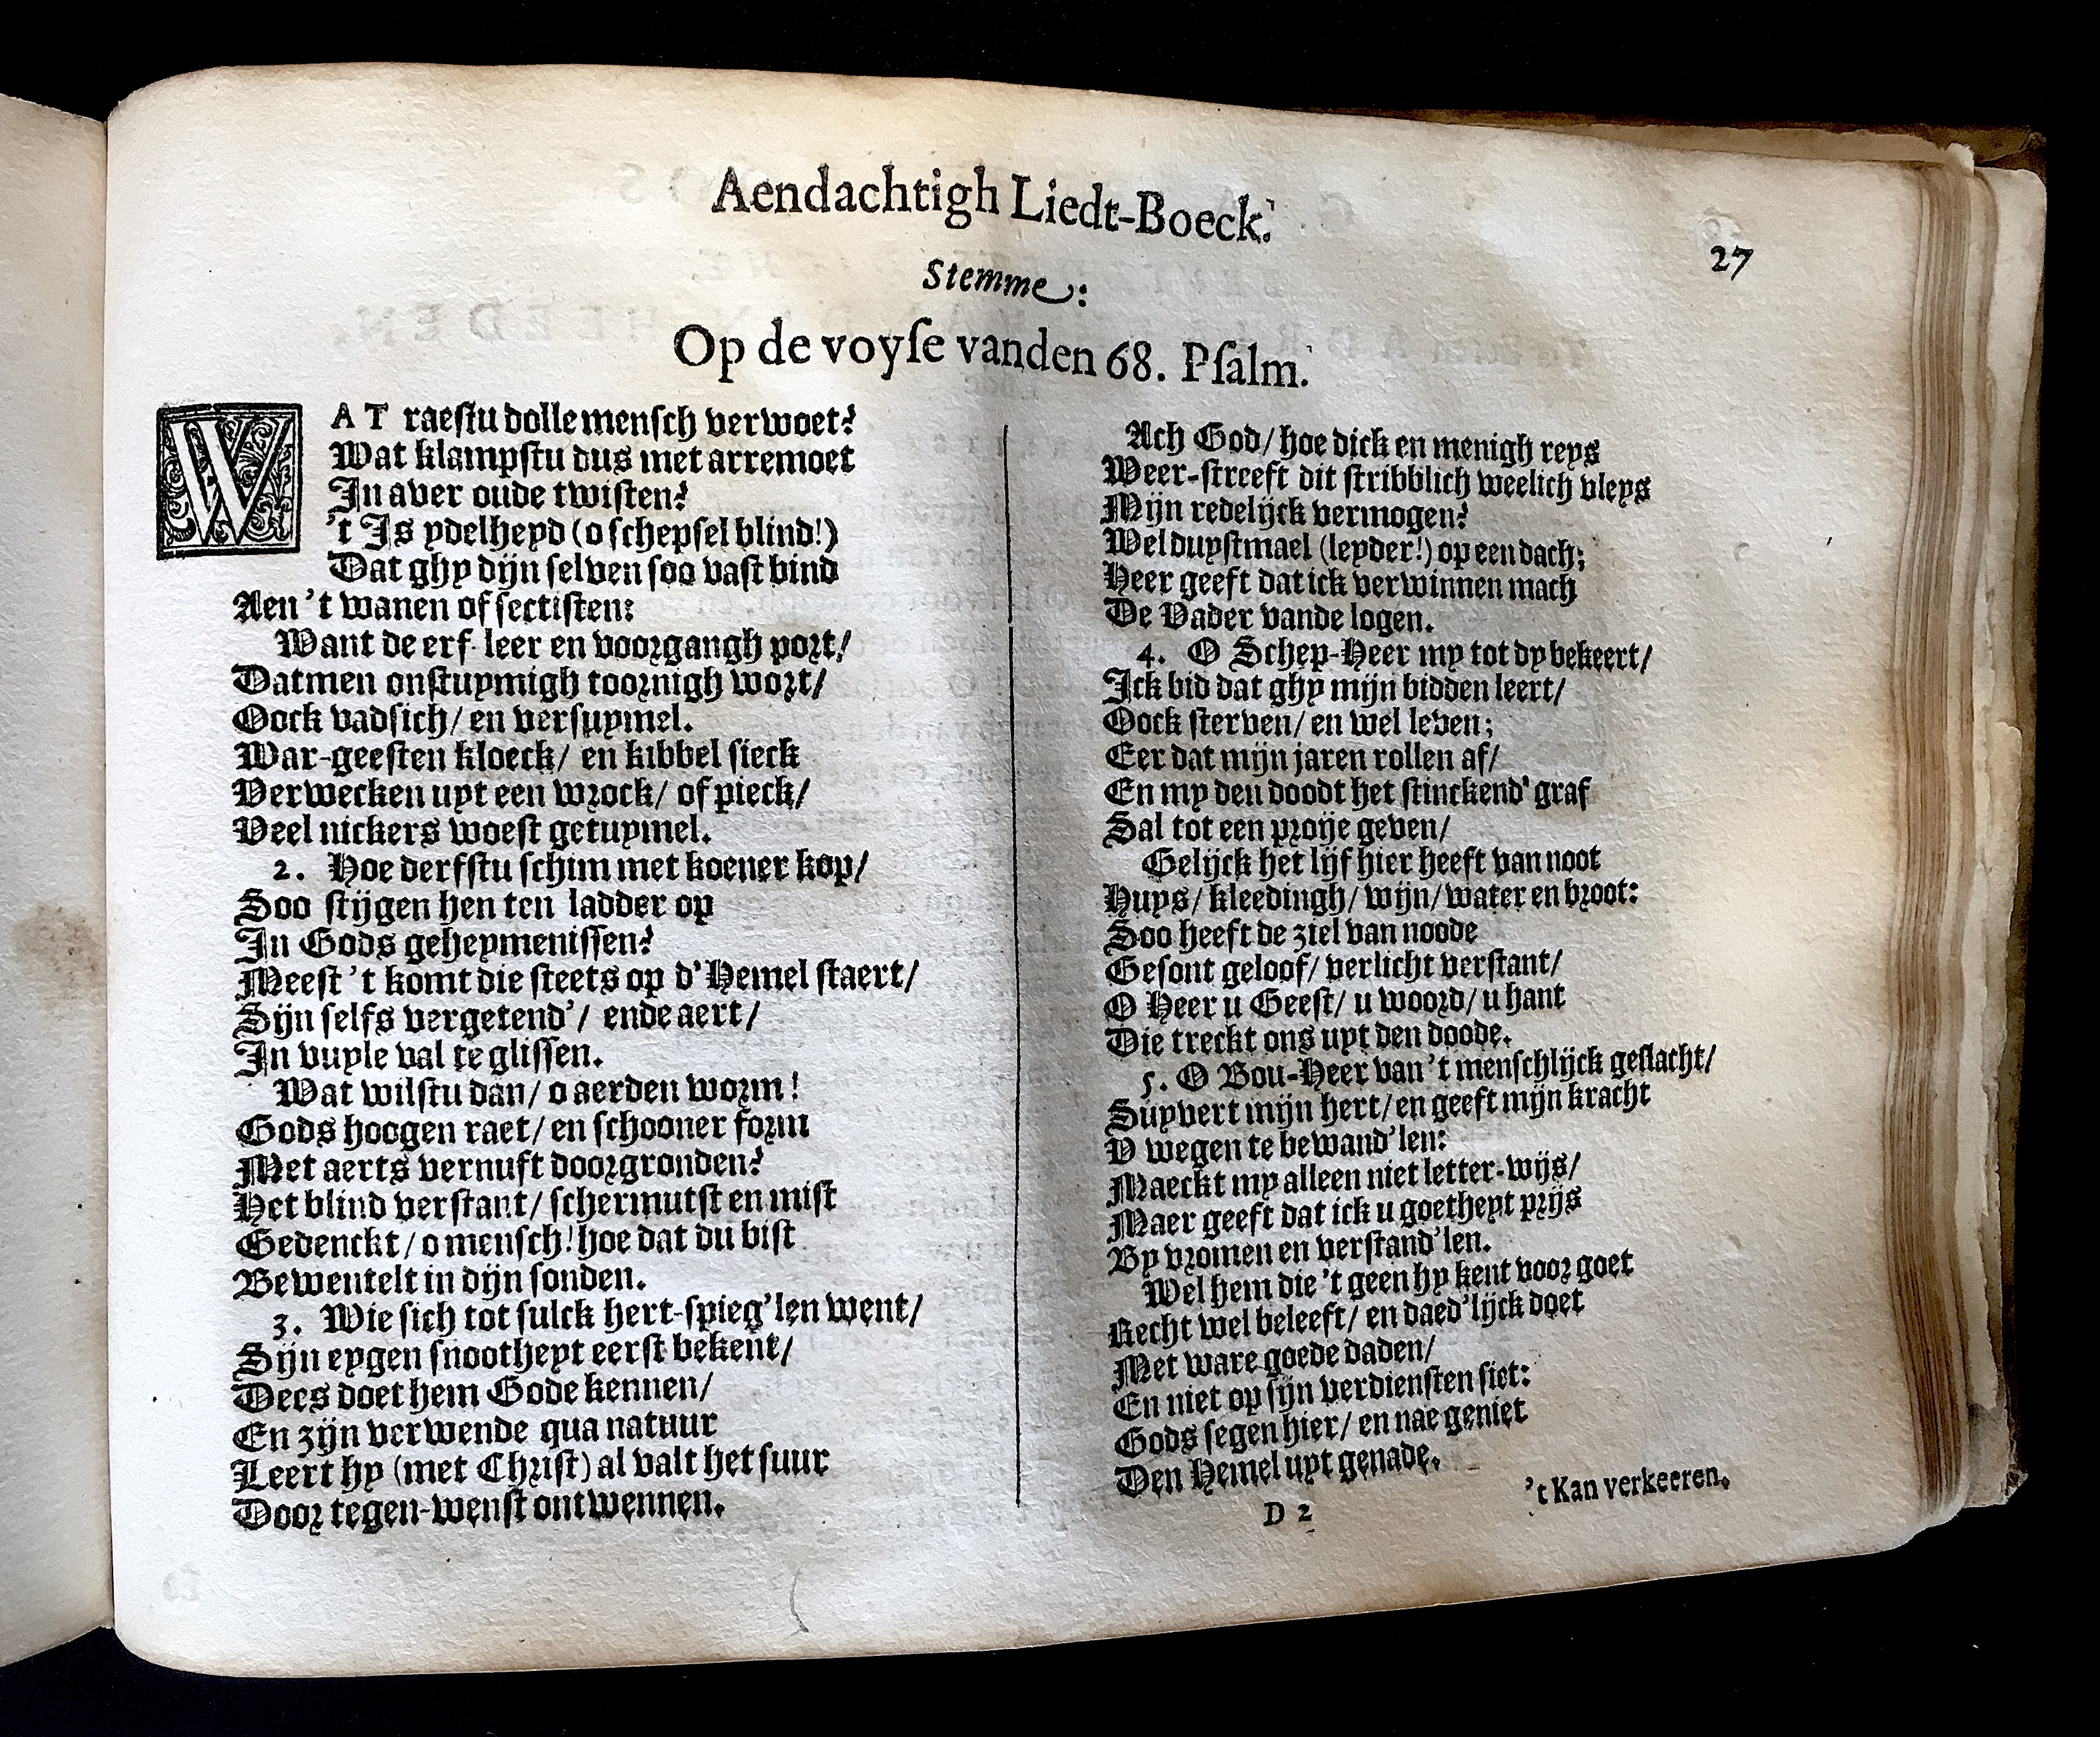 Aendachtigh Liedt-Boeck.
27
Stemme:
Op de voyſe vanden 68. Pſalm.
WAT raeſtu dolle menſch verwoet?
Wat klampſtu dus met arremoet
In aver oude twiſten?
't Is ydelheyd (o ſchepſel blind!)
Dat ghy dijn ſelven ſoo vaſt bind
Aen 't wanen of ſectiſten:
Want de erf-leer en voorgangh port/
Datmen onſtuymigh toornigh wort/
Oock vadſich/ en verſuymel.
War-geeſten kloeck/ en kibbel ſieck
Verwecken uyt een wrock/ of pieck/
Veel nickers woeſt getuymel.
2. Hoe derfſtu ſchim met koener kop/
Soo ſtijgen hen ten ladder op
In Gods geheymeniſſen?
Meeſt 't komt die ſteets op d'Hemel ſtaert/
Sijn ſelfs vergetend'/ ende aert/
In vuyle val te gliſſen.
Wat wilſtu dan/ o aerden worm!
Gods hoogen raet/ en ſchooner form
Met aerts vernuft doorgronden?
Het blind verſtant/ ſchermutſt en miſt
Gedenckt/ o menſch! hoe dat du biſt
Bewentelt in dijn ſonden.
3. Wie ſich tot ſulck hert-ſpieg'len went/
Sijn eygen ſnootheyt eerſt bekent/
Dees doet hem Gode kennen/
En zijn verwende qua natuur
Leert hy (met Chriſt) al valt het ſuur
Door tegen-wenſt ontwennen.
Ach God/ hoe dick en menigh reys
Weer-ſtreeft dit ſtribblich weelich vleys
Mijn redelijck vermogen?
Wel duyſtmael (leyder!) op een dach;
Heer geeft dat ick verwinnen mach
De Vader vande logen.
4. O Schep-Heer my tot dy bekeert/
Ick bid dat ghy mijn bidden leert/
Oock ſterven/ en wel leven;
Eer dat mijn jaren rollen af/
En my den doodt het ſtinckend' graf
Sal tot een proije geven/
Gelijck het lijf hier heeft van noot
Huys/ kleedingh/ wijn/ water en broot:
Soo heeft de ziel van noode
Geſont geloof/ verlicht verſtant/
O Heer u Geeſt/ u woord/ u hant
Die treckt ons uyt den doode.
5. O Bou-Heer van 't menſchlijck geſlacht/
Suyvert mijn hert/ en geeft mijn kracht
V wegen te bewand'len:
Maeckt my alleen niet letter-wijs/
Maer geeft dat ick u goetheyt prijs
By vromen en verſtand'len.
Wel hem die 't geen hy kent voor goet
Recht wel beleeft/ en daed'lijck doet
Met ware goede daden/
En niet op ſijn verdienſten ſiet:
Gods ſegen hier/ en nae geniet
Den Hemel uyt genade.
D 2
't Kan verkeeren.